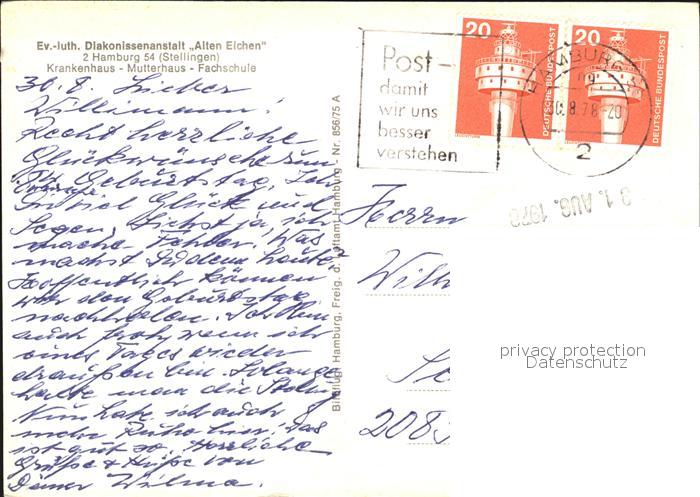 Ev.-luth. Diakonissenanstalt „Alten Eichen"
2 Hamburg 54 (Stellingen)
Krankenhaus - Mutterhaus - Fachschule
30. 8. Lieber
Willimann!
Recht herzliche
Glückwünsche zum
Geburtstag,
viel Glück und
Segen, Siehst ja, ich
mache Fehler. Was
machst Du denn heute?
Hoffentlich können
wir den Geburtstag
nachholen. Ich bin
auch froh, wenn ich
eines Tages wieder
draußen bin. Solange
halte man die Stellung
Nun habe ich auch
mehr Ruhe hier, das
ist gut so. Herzliche
Grüße & Küße von
Deiner Wilma.
Bildflug Hamburg, Freig. d. Luftamt Hamburg - Nr. 856/75 A
Post -
damit
wir uns
besser
verstehen
20
DEUTSCHE BUNDESPOST
20
DEUTSCHE BUNDESPOST
HAMBURG
8.78-20
2
31. AUG. 1978
Herrn
Wilh
2083
privacy protection
Datenschutz